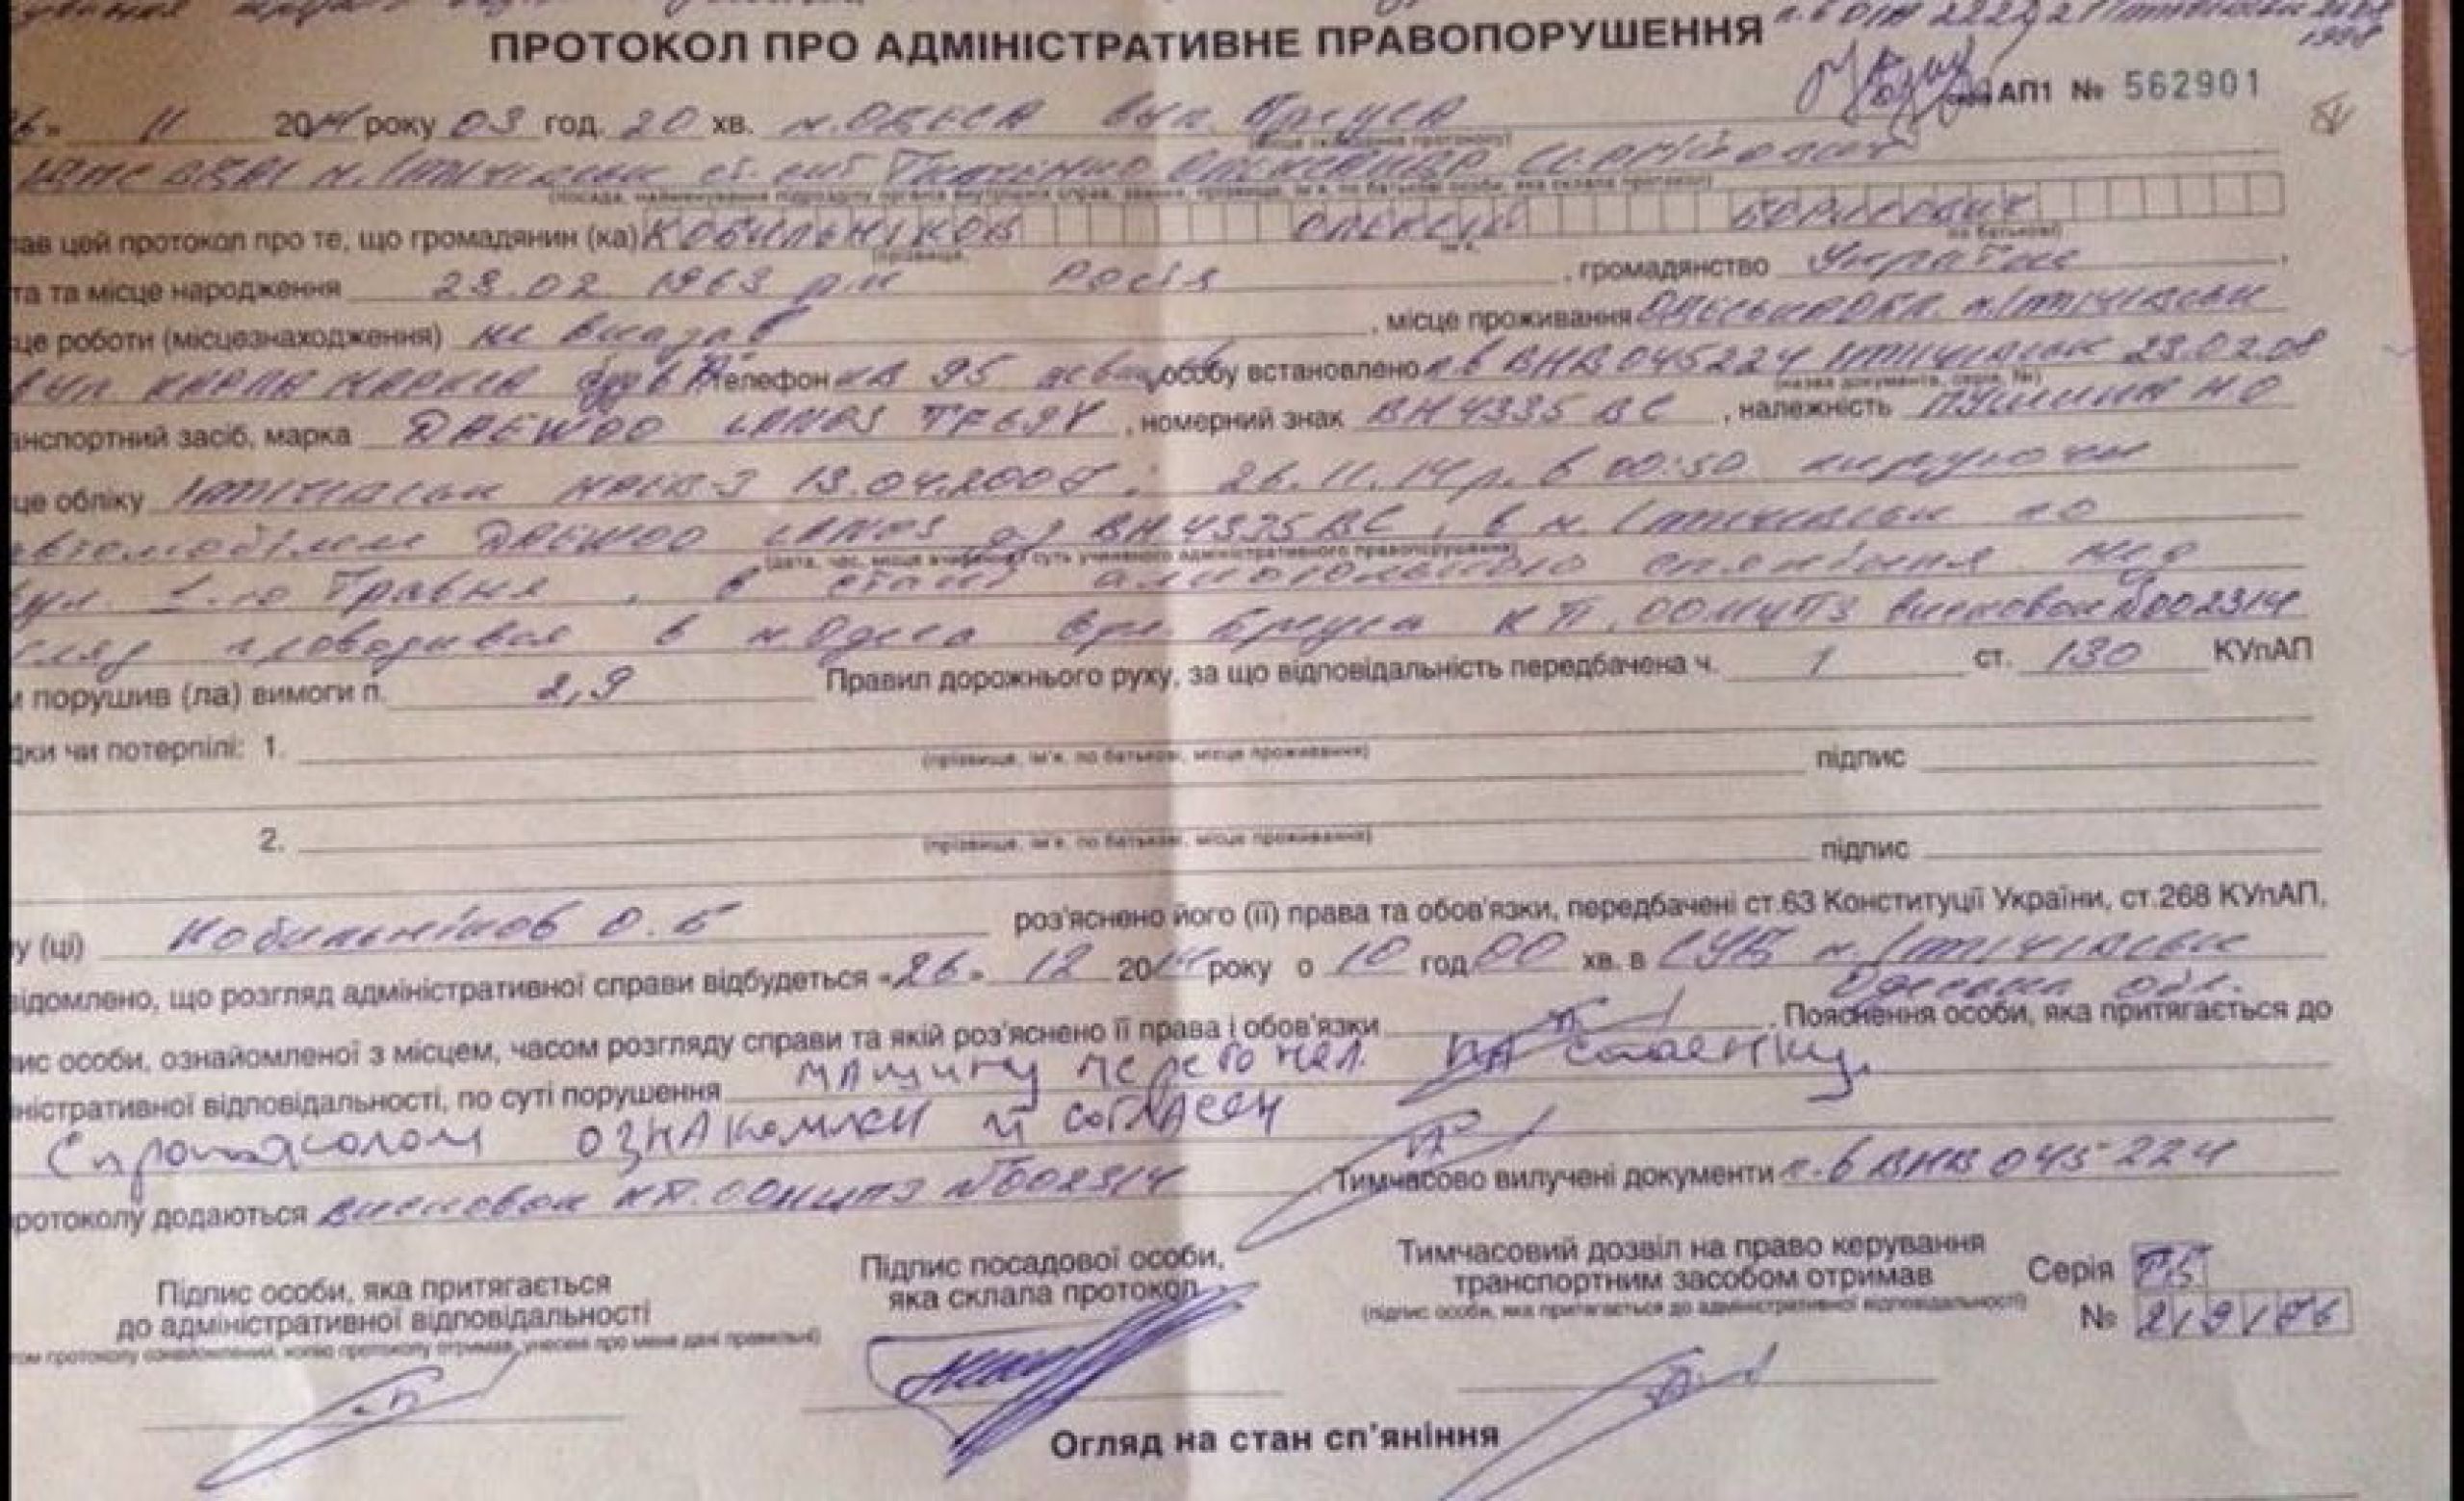 ПРОТОКОЛ ПРО АДМІНІСТРАТИВНЕ ПРАВОПОРУШЕННЯ
АП1 № 562901
11 2014 року 03 год. 20 хв. м. Одеса вул.
(місце складання протоколу)
м. Іллічівськ Олександр Сергійович
(посада, найменування підрозділу органа внутрішніх справ, звання, прізвище, ім'я, по батькові особи, яка склала протокол)
ав цей протокол про те, що громадянин (ка) Кобильніков Олексій Борисович
(прізвище, ім'я, по батькові)
та та місце народження 23.02 1963 р.н Росія , громадянство України,
це роботи (місцезнаходження) не вказав , місце проживання Одеська обл. м. Іллічівськ
вул. Карла Маркса телефон кв 95 особу встановлено п.в ВНВ 045224 Іллічівськ 23.02.08
(назва документа, серія, №)
анспортний засіб, марка DAEWOO LANOS TF69Y , номерний знак ВН 4335 ВС , належність
це обліку Іллічівськ 13.04.2007 : 26.11.14р. в 00:50 керуючи
автомобілем DAEWOO LANOS д.з ВН 4335 ВС, в м. Іллічівськ по
(дата, час, місце вчинення і суть учиненого адміністративного правопорушення)
вул. 1-го Травня , в стані алкогольного сп'яніння. мед
огляд проводився в м. Одеса вул. КП. ООМЦПЗ висновок №002314
м порушив (ла) вимоги п. 2,9 Правил дорожнього руху, за що відповідальність передбачена ч. 1 ст. 130 КУпАП
дки чи потерпілі: 1.
(прізвище, ім'я, по батькові, місце проживання) підпис
2.
(прізвище, ім'я, по батькові, місце проживання) підпис
у (ці) Кобильніков О. Б роз'яснено його (її) права та обов'язки, передбачені ст.63 Конституції України, ст.268 КУпАП,
ідомлено, що розгляд адміністративної справи відбудеться «26» 12 2014 року о 10 год 00 хв. в суд м. Іллічівськ
Одеська обл.
ис особи, ознайомленої з місцем, часом розгляду справи та якій роз'яснено її права і обов'язки . Пояснення особи, яка притягається до
ністративної відповідальності, по суті порушення машину перегонял на стоянку.
С протоколом ознакомлен и согласен
ротоколу додаються висновок КП. ООМЦПЗ №002314 Тимчасово вилучені документи п.в ВНВ 045224
Підпис особи, яка притягається
до адміністративної відповідальності
Підпис посадової особи,
яка склала протокол
Тимчасовий дозвіл на право керування
транспортним засобом отримав
(підпис особи, яка притягається до адміністративної відповідальності)
Серія
№
Огляд на стан сп'яніння